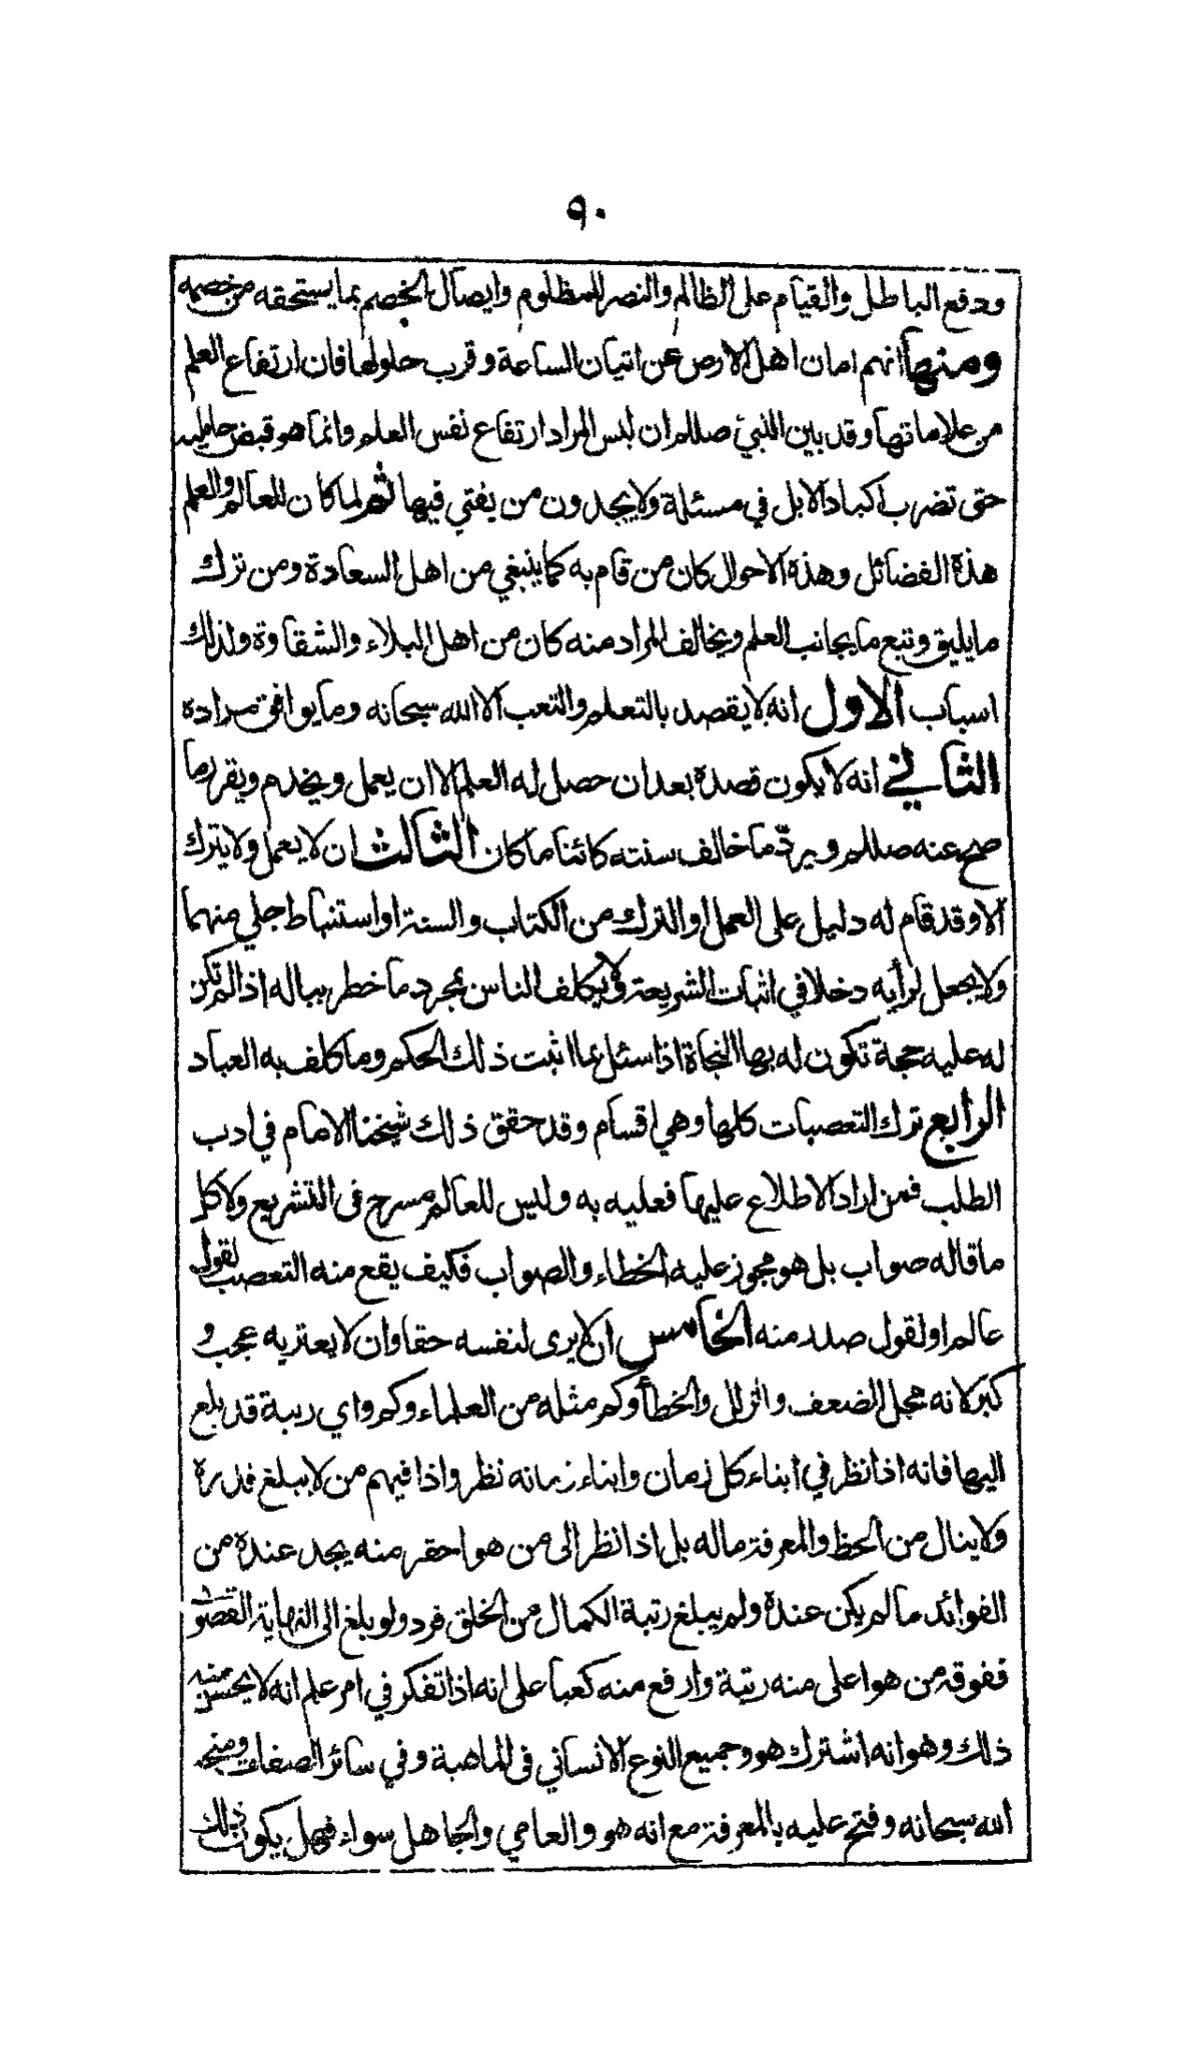 ٩٠
ودفع الباطل والقيام على الظالم والنصر للمظلوم وايصال الخصم بما يستحقه من خصمه
ومنها انهم امان اهل الارض عن اتيان الساعة وقرب حلولها فان ارتفاع العلم
من علاماتها وقد بين النبي صللم ان ليس المراد ارتفاع نفس العلم وانما هو قبض حامليه
حتى تضرب اكباد الابل في مسئلة ولا يجدون من يفتي فيها ثم لما كان للعالم والعلم
هذه الفضائل وهذه الاحوال كان من قام به كما ينبغي من اهل السعادة ومن ترك
ما يليق وتبع ما يجانب العلم ويخالف المراد منه كان من اهل البلاء والشقاوة ولذلك
اسباب الاول انه لا يقصد بالتعلم والتعب الا الله سبحانه وما يوافق مراده
الثاني انه لا يكون قصده بعد ان حصل له العلم الا ان يعمل ويخدم ويقرر ما
صح عنه صللم ويردّ ما خالف سنته كائنا ما كان الثالث ان لا يعمل ولا يترك
الا وقد قام له دليل على العمل او الترك من الكتاب والسنة او استنباط جلي منهما
ولا يجعل لرأيه دخلا في اثبات الشريعة ولا يكلف الناس بمجرد ما خطر بباله اذا لم تكن
له عليه حجة تكون له بها النجاة اذا سئل عما اثبت ذلك الحكم وما كلف به العباد
الرابع ترك التعصبات كلها وهي اقسام وقد حقق ذلك شيخنا الامام في ادب
الطلب فمن اراد الاطلاع عليها فعليه به وليس للعالم مسرح في التشريع ولا كل
ما قاله صواب بل هو مجوز عليه الخطاء والصواب فكيف يقع منه التعصب لقول
عالم او لقول صدر منه الخامس ان لا يرى لنفسه حقا وان لا يعتريه عجب و
كبر لانه محل الضعف والزلل والخطأ وكم مثله من العلماء وكم واي رتبة قد بلغ
اليها فانه اذا نظر في ابناء كل زمان وابناء زمانه نظر واذا فيهم من لا يبلغ قدره
ولا ينال من الحظ والمعرفة ماله بل اذا نظر الى من هو احقر منه يجد عنده من
الفوائد ما لم يكن عنده ولم يبلغ رتبة الكمال من الخلق فرد ولو بلغ الى النهاية القصوى
ففوقه من هو اعلى منه رتبة وارفع منه كعبا على انه اذا تفكر في امر علم انه لا يحسن منه
ذلك وهو انه اشترك هو وجميع النوع الانساني في الماهية وفي سائر الصفات ومنحه
الله سبحانه وفتح عليه بالمعرفة مع انه هو والعامي والجاهل سواء فهل يكون ذلك